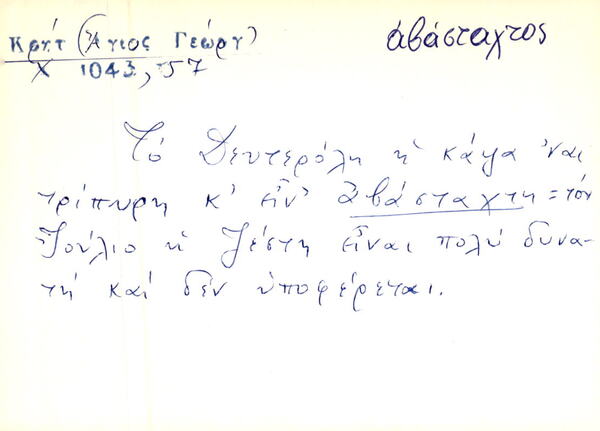 Κρήτ (Ἅγιος Γεώργ)
ἀβάσταχτος
Χ 1043, 57
Τὸ Δευτερόλη ἡ κάψα 'ναι
τρίπυρη κ' εἶν' ἀβάσταχτη = τὸν
Ἰούλιο ἡ ζέστη εἶναι πολὺ δυνα-
τή καὶ δὲν ὑποφέρεται.